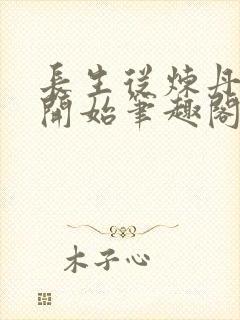 長生從煉丹
開始筆趣閣
木子心